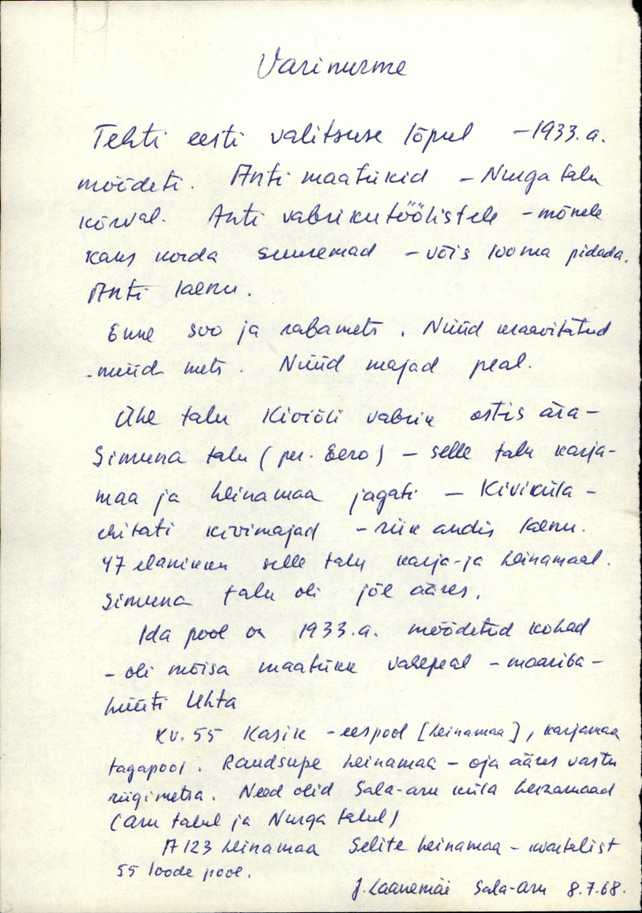 Varinurme
Tehti eesti valitsuse lõpul – 1933.a.
mõõdeti. Anti maatükid – Nurga talu
kõrval. Anti vabrikutöölistele – mõnele
kaks korda suuremad – võis looma pidada.
Anti laenu.
Enne soo ja rabamets. Nüüd kraavitatud
– nüüd mets. Nüüd majad peal.
Ühe talu Kiviõli vabrik ostis ära –
Simuna talu (per. Eero) – selle talu karja-
maa ja heinamaa jagati – Kiviküla –
ehitati kivimajad – riik andis laenu.
47 elanikku selle talu karja- ja heinamaal.
Simuna talu oli jõe ääres.
Ida pool on 1933.a. mõõdetud kohad
– oli mõisa maatükk vahepeal – maariba –
hüüti Uhta
Kv. 55 Kasik – eespool [heinamaa], karjamaa
tagapool. Raudsupe heinamaa – oja ääres vastu
riigimetsa. Need olid Sala-aru küla heinamaad
(Aru talul ja Nurga talul)
A 123 heinamaa Selite heinamaa – kvartalist
55 loode pool.
J. Laanemäi Sala-aru 8.7.68.